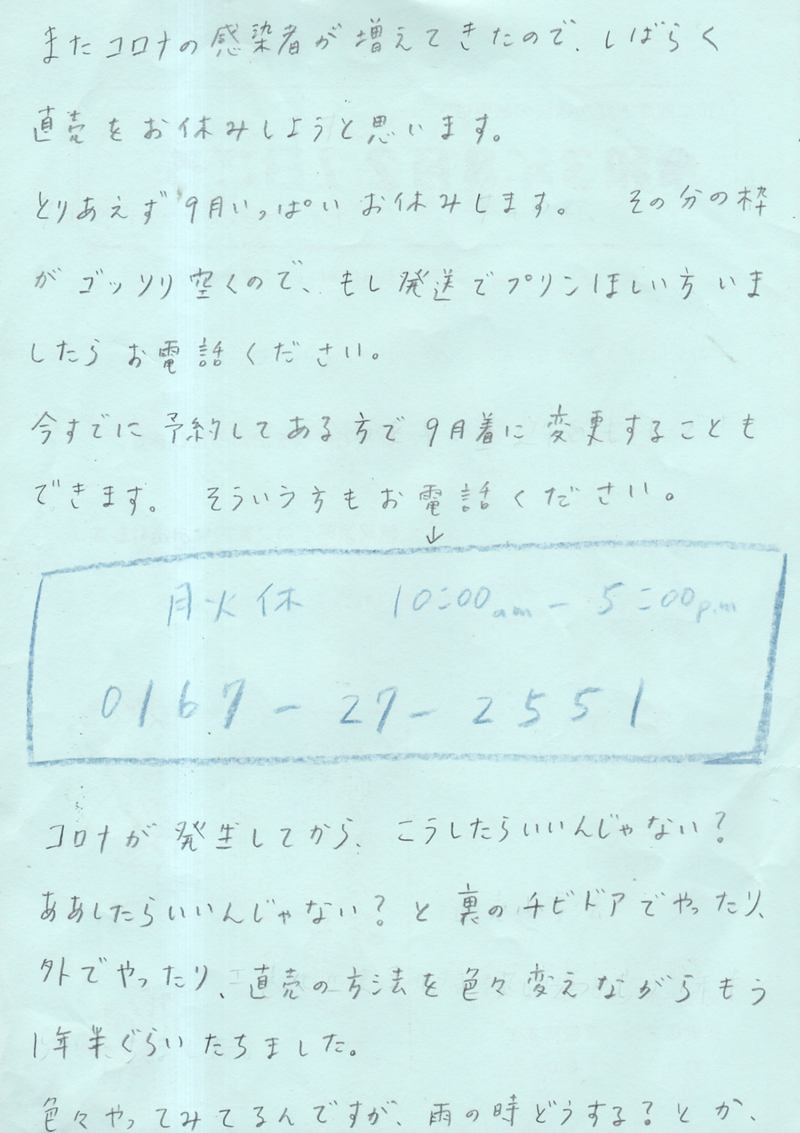 またコロナの感染者が増えてきたので、しばらく
直売をお休みしようと思います。
とりあえず9月いっぱいお休みします。 その分の枠
がゴッソリ空くので、もし発送でプリンほしい方いま
したらお電話ください。
今すでに予約してある方で9月着に変更することも
できます。 そういう方もお電話ください。
↓
月火休 10:00am - 5:00p.m
0167-27-2551
コロナが発生してから、こうしたらいいんじゃない?
ああしたらいいんじゃない?と裏のチビドアでやったり、
外でやったり、直売の方法を色々変えながらもう
1年半ぐらいたちました。
色々やってみてるんですが、雨の時どうする?とか、